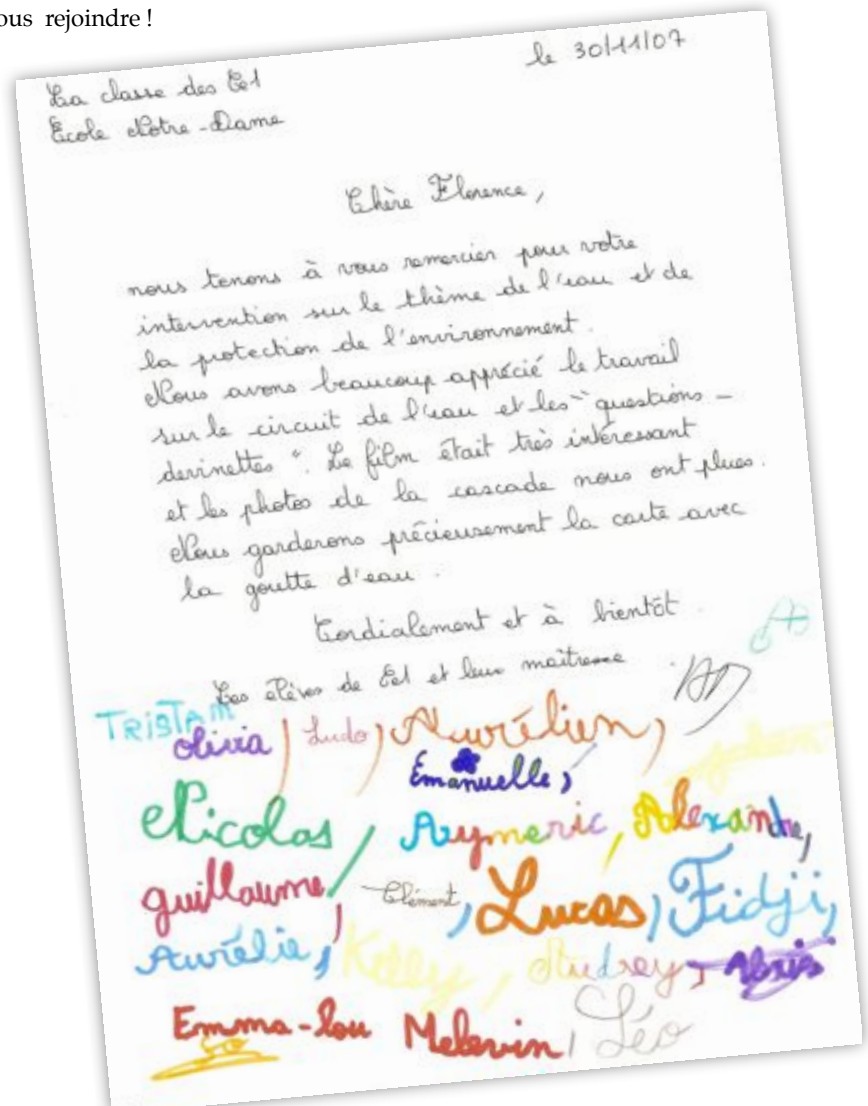 ous rejoindre !
le 30/11/07
La classe des Ce1
École Notre-Dame
Chère Florence,
nous tenons à vous remercier pour votre
intervention sur le thème de l'eau et de
la protection de l'environnement.
Nous avons beaucoup apprécié le travail
sur le circuit de l'eau et les "questions -
devinettes". Le film était très intéressant
et les photos de la cascade nous ont plues.
Nous garderons précieusement la carte avec
la goutte d'eau.
Cordialement et à bientôt.
Les élèves de Ce1 et leur maîtresse
TRISTAM
olivia, Ludo, Aurélien,
Emanuelle,
Nicolas, Aymeric, Alexandre,
guillaume, Clément, Lucas, Fidji,
Aurélie, Kelly, Audrey,
Emma-lou Melevin, Léo